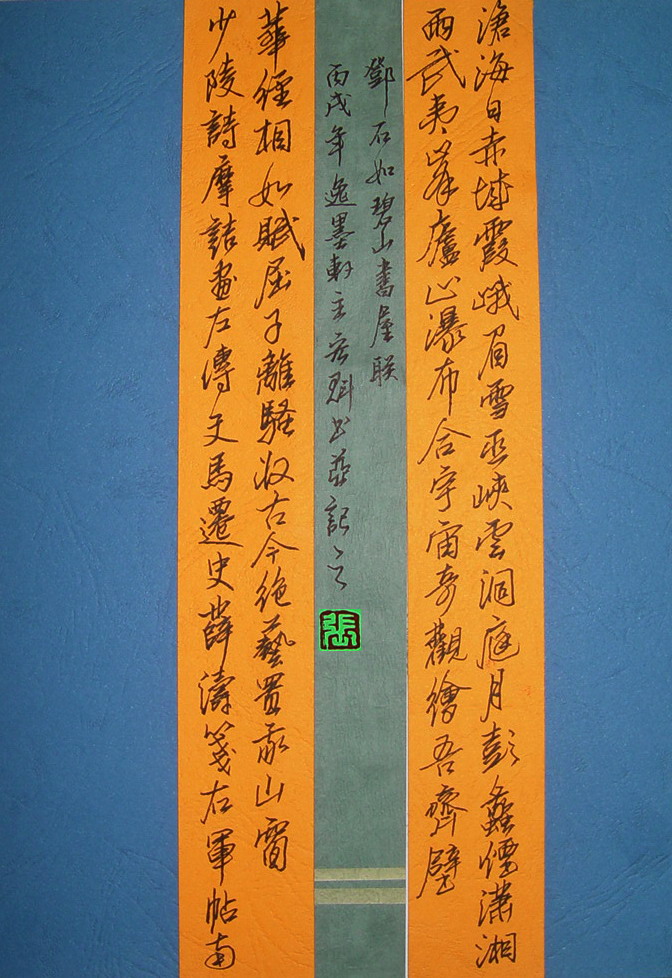 滄海日赤城霞峨眉雪巫峽雲洞庭月彭蠡煙瀟湘
雨武夷峯廬山瀑布合宇宙奇觀繪吾齋壁
鄧石如碧山書屋联
丙戌年逸墨軒主书並記之
張
少陵詩摩詰畫左傳文馬遷史薛濤箋右軍帖南
華經相如賦屈子離騷收古今絶藝置我山窗